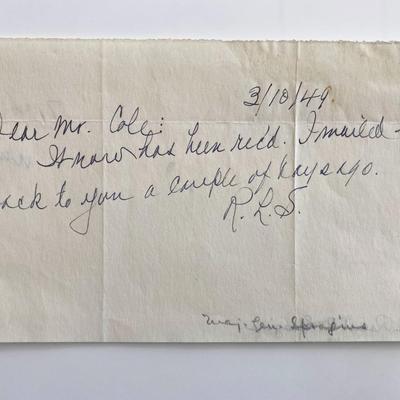 3/10/49
Dear Mr. Cole:
It now has been recd. I mailed -
back to you a couple of days ago.
R. L. S.
Maj. Gen. Spragins